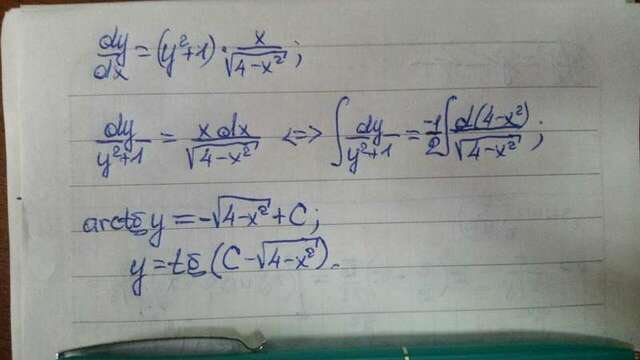 dy/dx = (y²+1) · x/√(4-x²);
dy/(y²+1) = x dx/√(4-x²) <=> ∫ dy/(y²+1) = -1/2 ∫ d(4-x²)/√(4-x²);
arctg y = -√(4-x²) + C;
y = tg (C - √(4-x²)).